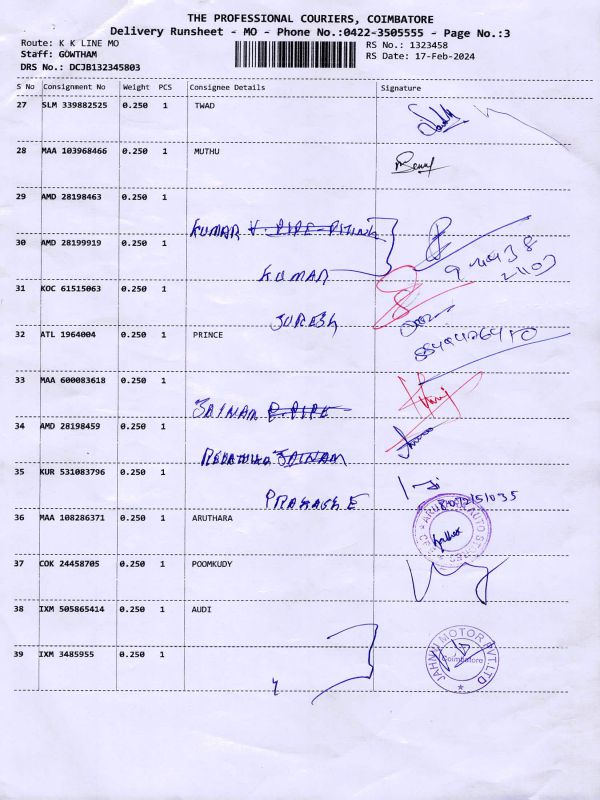 THE PROFESSIONAL COURIERS, COIMBATORE
Delivery Runsheet - MO - Phone No.:0422-3505555 - Page No.:3
Route: K K LINE MO
RS No.: 1323458
Staff: GOWTHAM
RS Date: 17-Feb-2024
DRS No.: DCJB132345803
S No Consignment No Weight PCS Consignee Details Signature
27 SLM 339882525 0.250 1 TWAD
28 MAA 103968466 0.250 1 MUTHU
29 AMD 28198463 0.250 1
KUMAR
30 AMD 28199919 0.250 1
KUMAR
31 KOC 61515063 0.250 1
SURESH
32 ATL 1964004 0.250 1 PRINCE
33 MAA 600083618 0.250 1
JAINAM
34 AMD 28198459 0.250 1
JAINAM
35 KUR 531083796 0.250 1
PRAKASH E
36 MAA 108286371 0.250 1 ARUTHARA
37 COK 24458705 0.250 1 POOMKUDY
38 IXM 505865414 0.250 1 AUDI
39 IXM 3485955 0.250 1
JAHNVI MOTOR PVT. LTD
Coimbatore